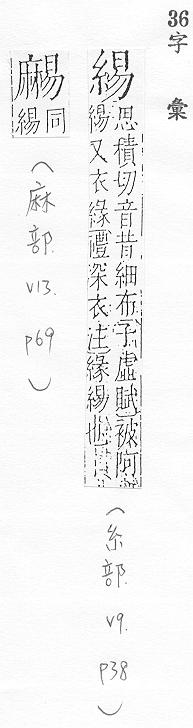 36字 彙
緆
思積切音昔細布子虛賦被阿
緆又衣緣禮深衣注緣緆也
(糸部. V9. p38)
同
緆
(麻部. V13. p69)